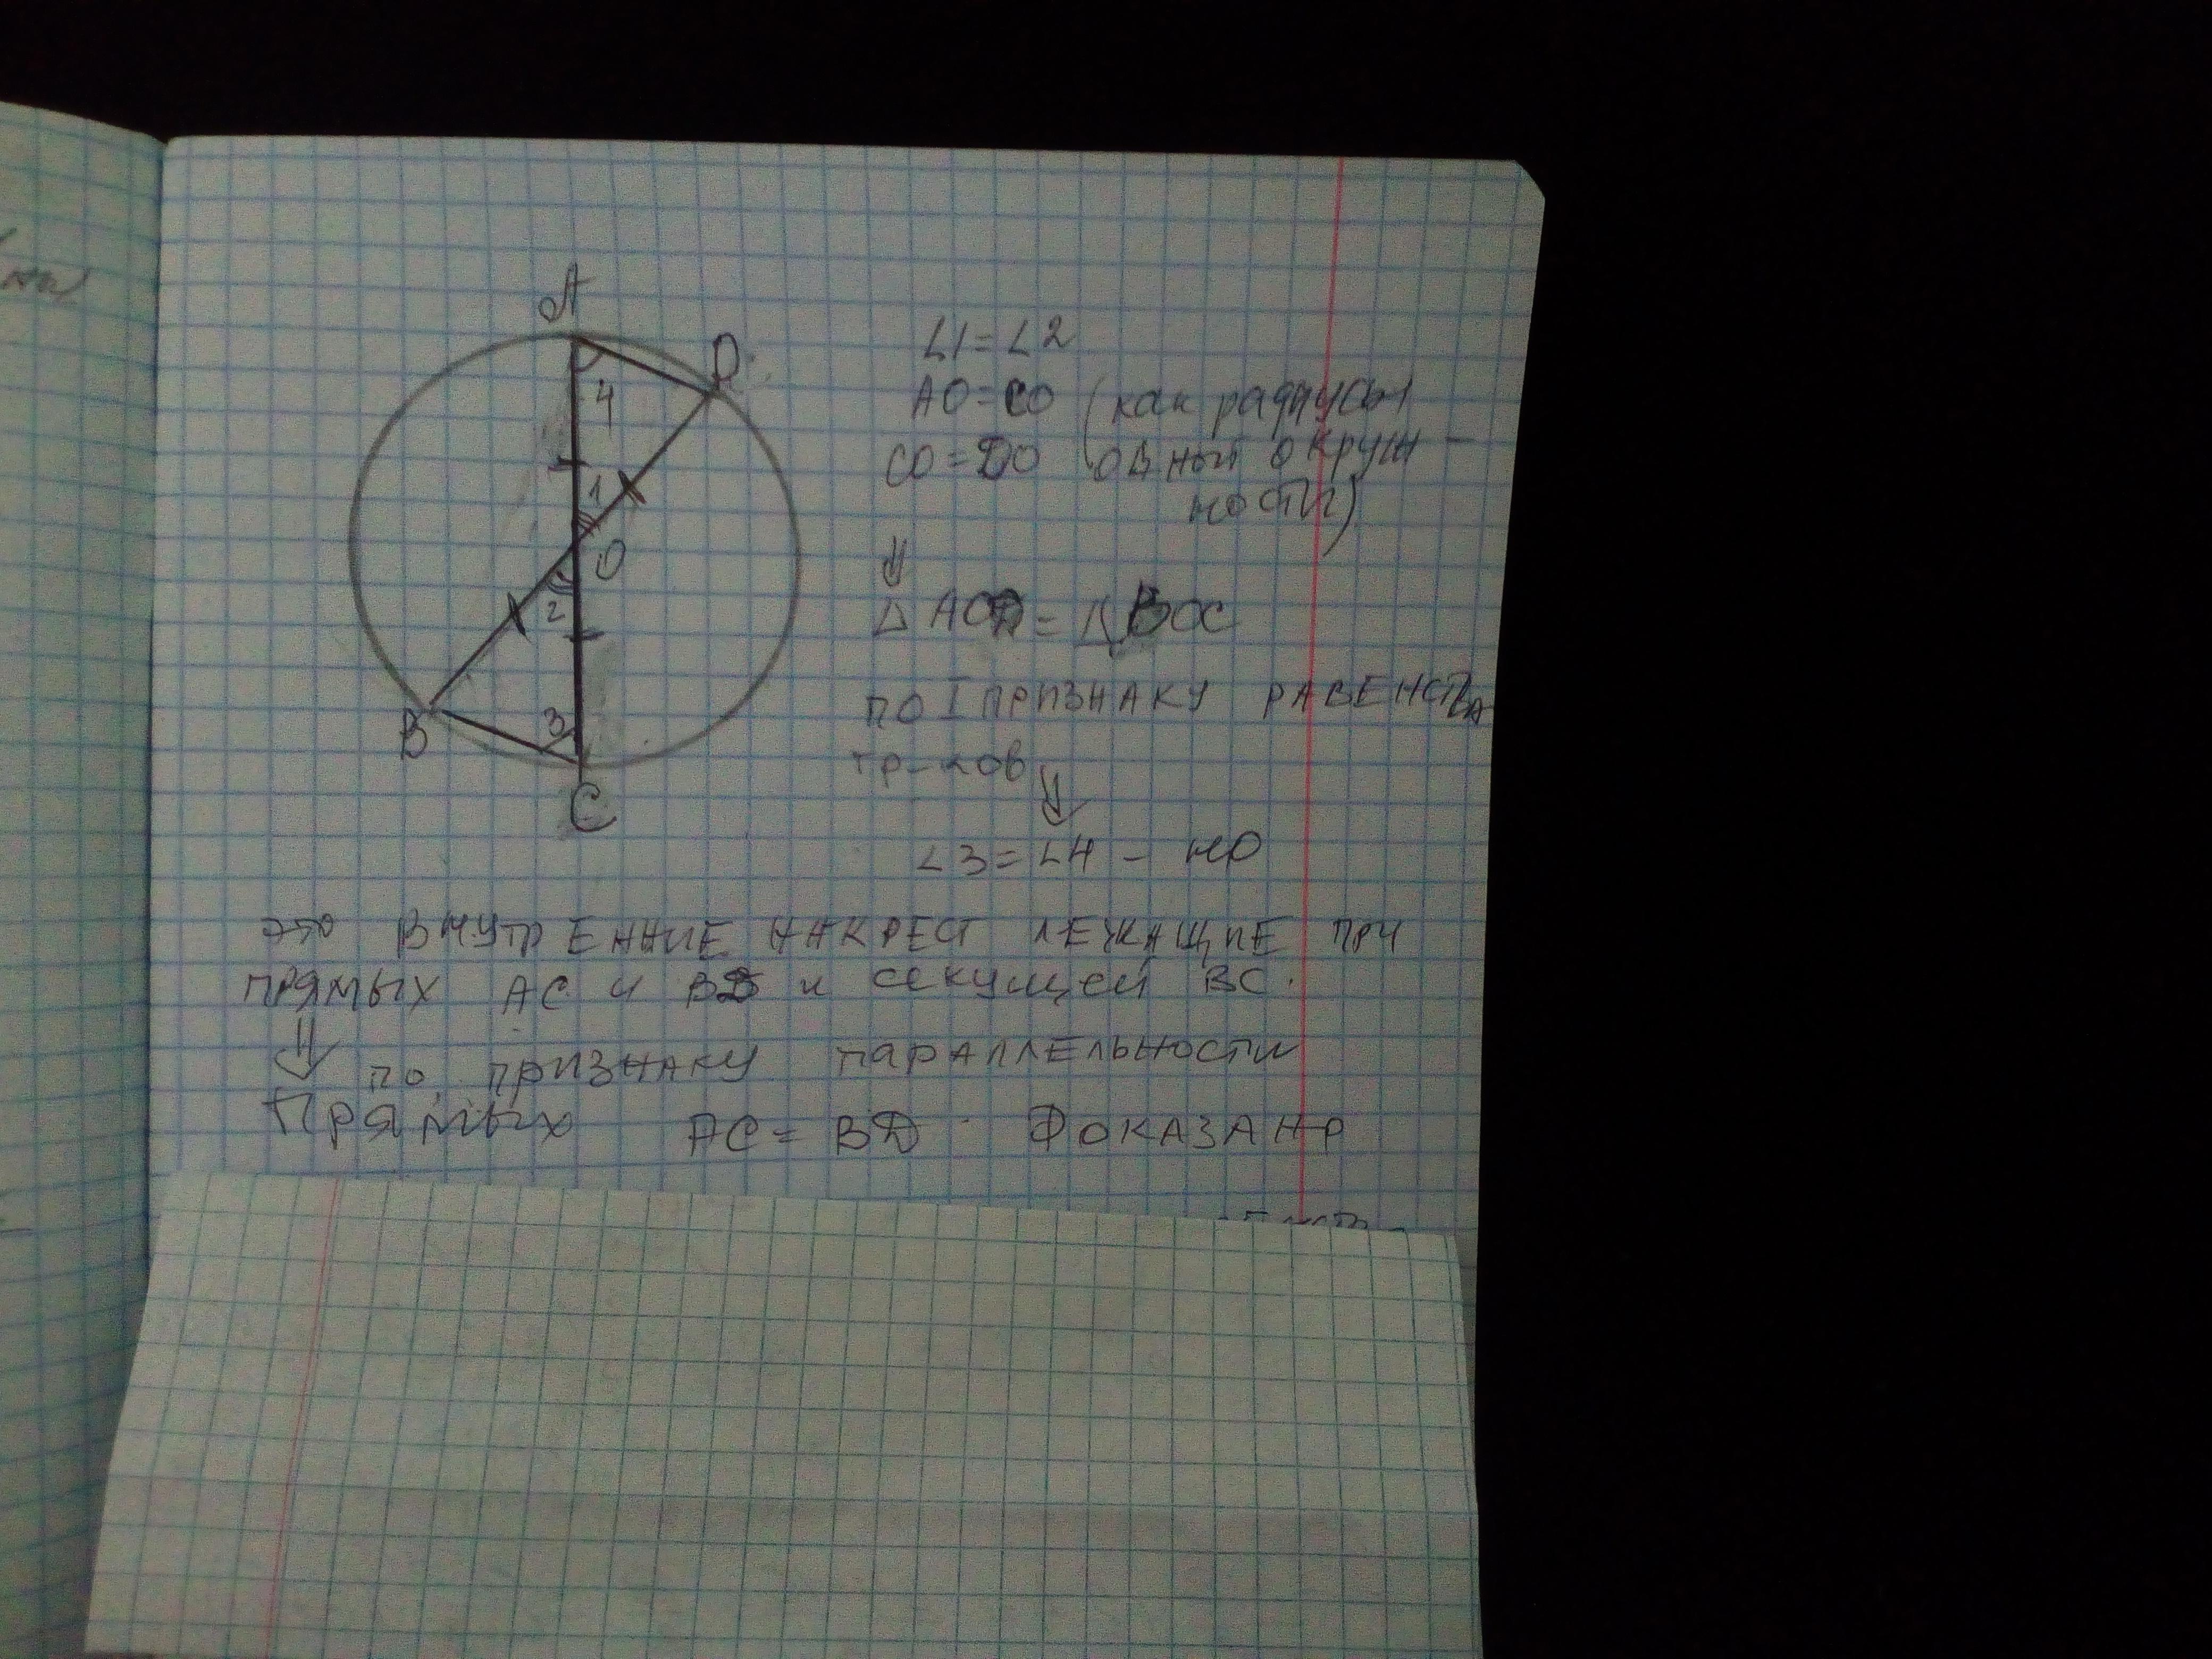 A
D
4
1
O
2
3
B
C
∠1=∠2
AO=CO (как радиусы
CO=DO одной окруж-
ности)
⇓
△ AOD = △ BOC
по I признаку равенства
тр-ков
⇓
∠3=∠4 – но
это внутренние накрест лежащие при
прямых AC и BD и секущей BC.
⇓ по признаку параллельности
Прямых AC = BD Доказано